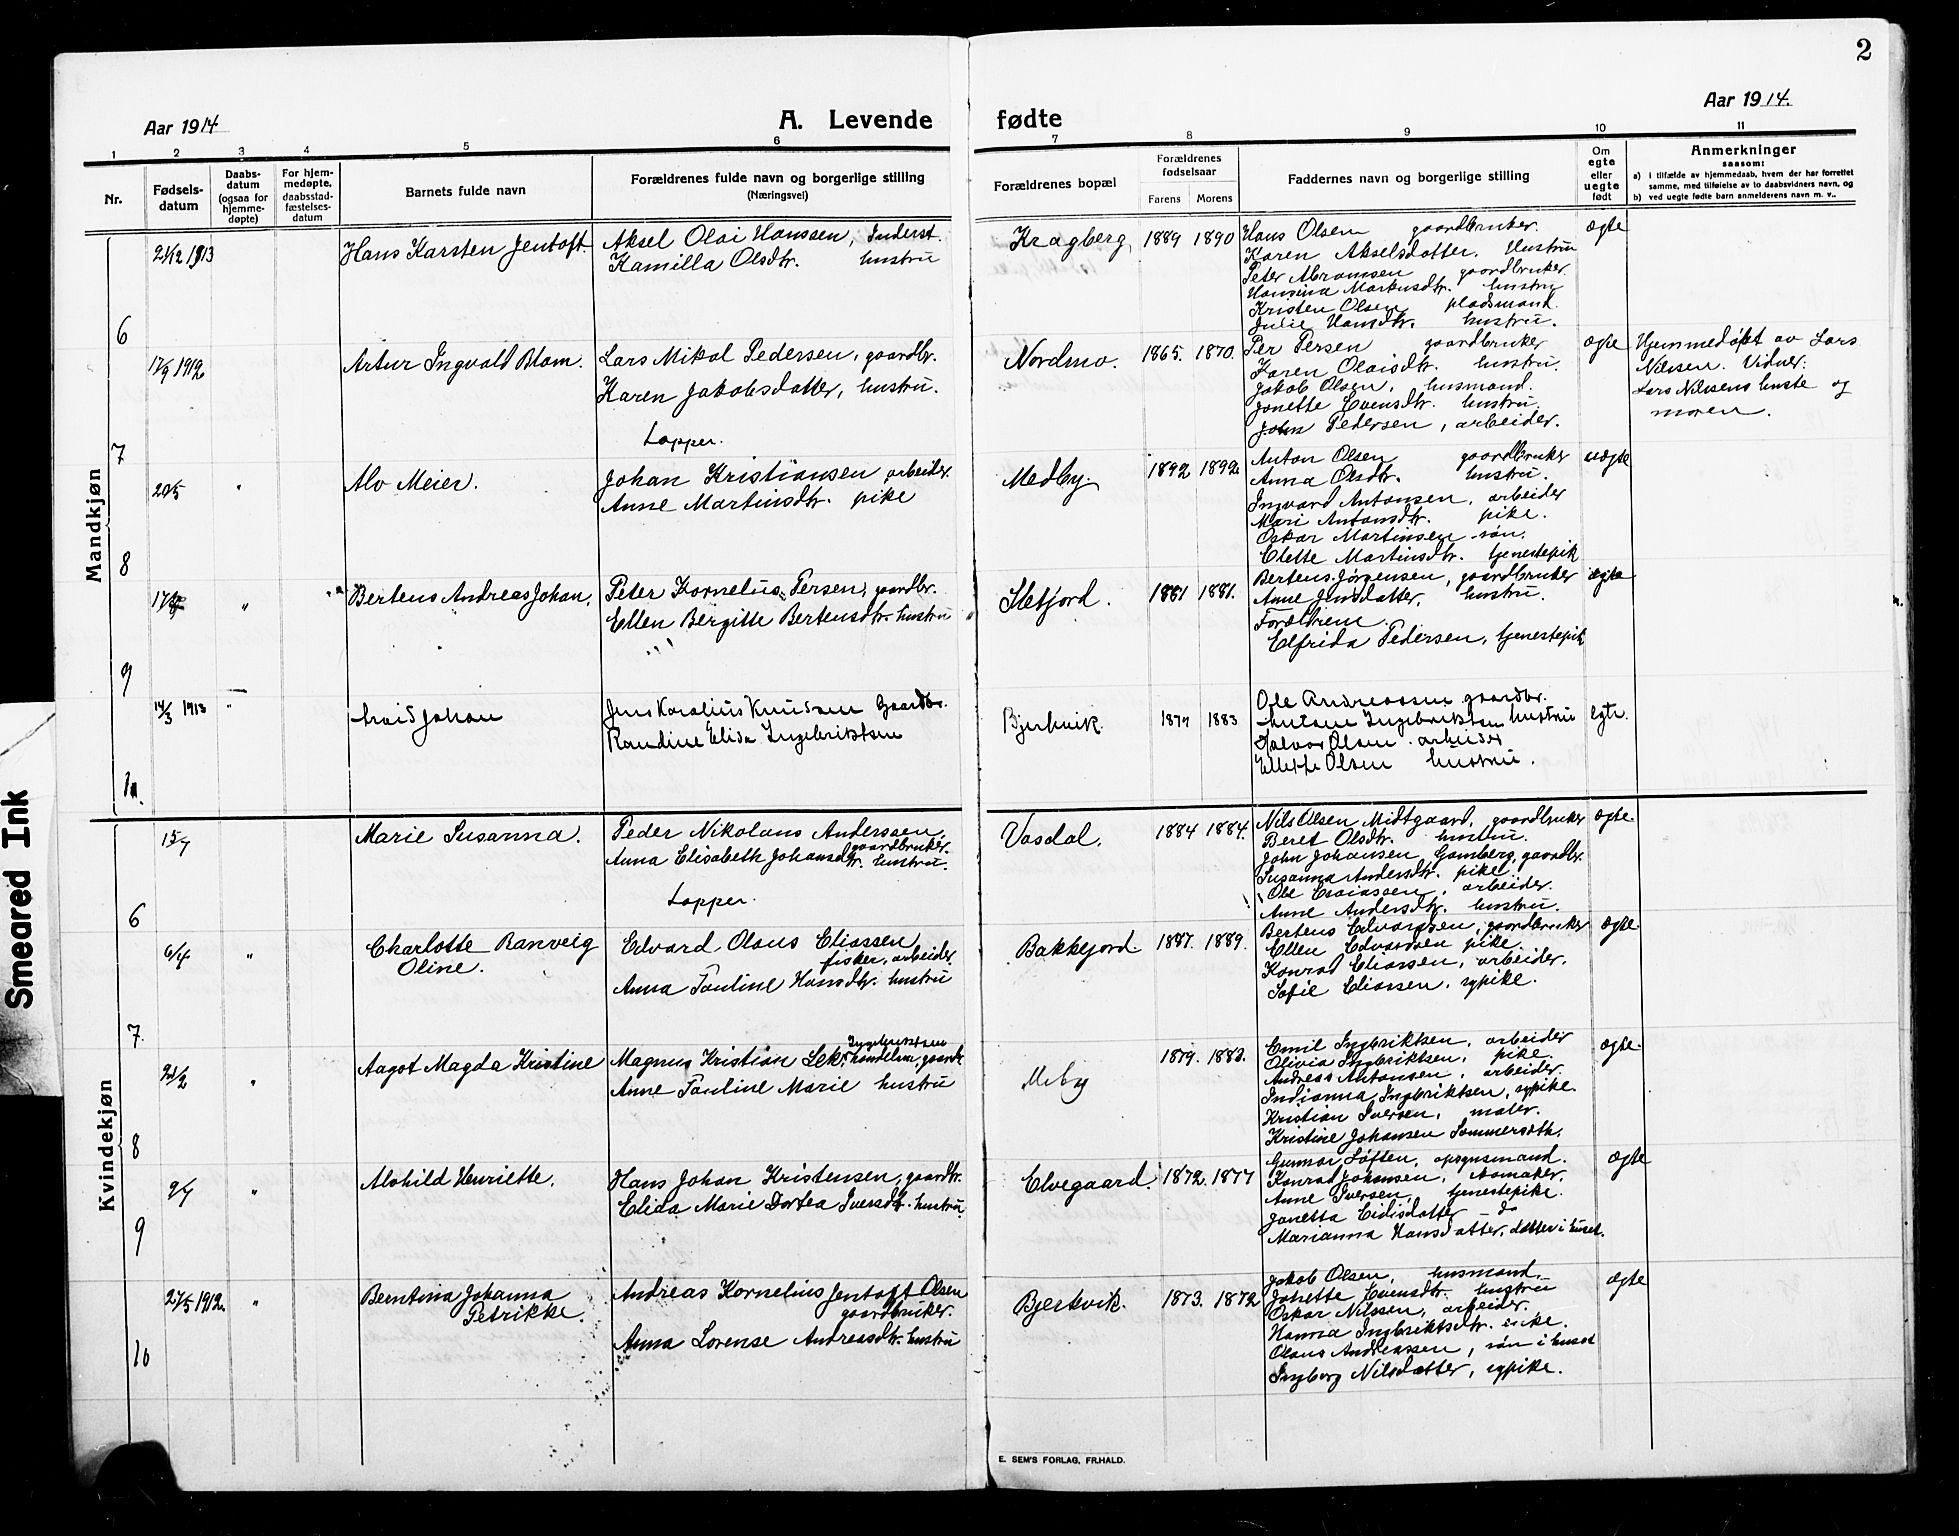 2
Aar 1914
A. Levende fødte
Aar 1914.
1 2 3 4 5 6 7 8 9 10 11
Nr.
Fødsels-
datum
Daabs-
datum
(ogsaa for
hjemme-
døpte)
For hjem-
medøpte,
daabsstad-
fæstelses-
datum
Barnets fulde navn
Forældrenes fulde navn og borgerlige stilling
(Næringsvei)
Forældrenes bopæl
Forældrenes
fødselsaar
Farens Morens
Faddernes navn og borgerlig stilling
Om
egte
eller
uegte
født
Anmerkninger
saasom:
a) i tilfælde av hjemmedaab, hvem der har forrettet
samme, med tilføielse av to daabsvidners navn, og
b) ved uegte fødte barn anmelderens navn m. v..
Mandkjøn
6
21/12 1913
Hans Karsten Jentoft.
Aksel Olai Hanssen, Inderst.
Kamilla Olsdtr. hustru
Kragberg,
1889 1890
Hans Olsen gaardbruker.
Karen Akselsdatter. Hustru
Peter Abramsen gaardbruker.
Hansina Markusdtr. hustru
Kristen Olsen pladsmand.
Julie Hansdtr. hustru.
ægte
7
17/9 1912
Artur Ingvald Blom.
Lars Mikal Pedersen, gaardbr.
Karen Jakobsdatter, hustru.
Lapper.
Nordmo.
1865. 1870.
Per Persen gaardbruker
Karen Olaisdtr. hustru.
Jakob Olsen, husmand.
Jonette Evensdtr. hustru.
John Pedersen, arbeider.
ægte
Hjemmedøbt av Lars
Nilssen. Vidner:
Lars Nilssens huste og
moren.
8
20/5 "
Alv Meier.
Johan Kristiansen arbeider.
Anne Martinsdtr. pike
Medby.
1892 1892.
Anton Olsen gaardbruker
Anna Olsdtr. hustru.
Ingvard Antonsen, arbeider
Mari Antonsdtr. pike.
Oskar Martinsen søn.
Elette Martinsdtr. tjenestepik
uægte
9
"
Bertens Andreas Johan.
Peter Kornelius Persen, gaardbr.
Ellen Bergitte Bertensdtr. hustru
1881 1881.
Bertens Jørgensen, gaardbruker
Anne Jensdatter, hustru.
Forældrene.
Elfrida Pedersen, tjenestepik
ægte
10.
14/3 1913 "
Johan
Jens Karolius Knudsen Gaardbr.
Randine Elida Ingebriktsen
Bjerkvik.
1877 1883
Ole Andreassen gaardbr.
Ingebriktsen hustru
Halvor Olsen. arbeider
Ellexe Olsen hustru.
egte.
Kvindekjøn
6
15/4
Marie Susanna.
Peder Nikolaus Anderssen,
gaardbruker.
Anna Elisabeth Johansdtr. hustru.
Lapper.
Vasdal.
1884 1884.
Nils Olsen Midtgaard, gaardbruker
Beret Olsdtr. hustru.
John Johansen Gamberg, gaardbr.
Susanna Andersdtr. pike.
Ole Esaiassen, arbeider.
Anne Andersdtr. hustru.
ægte.
7.
6/4 "
Charlotte Ranveig
Oline.
Edvard Olaus Eliassen
fisker, arbeider.
Anna Pauline Hansdtr. hustru
Bakkejord.
1887. 1889.
Bertens Edvardsen, gaardbruker
Ellen Edvardsen pike.
Konrad Eliassen, arbeider.
Sofie Eliassen, sypike.
ægte.
8
21/2 "
Aagot Magda Kristine
Ingebriktsen
Magnus Kristian Lek, handelsm., gaardb.
Anne Pauline Marie hustru
Meby
1879. 1883.
Emil Ingbriktsen, arbeider
Olivia Ingbriktsen, pike.
Andreas Antonsen, arbeider.
Indianna Ingbriktsen, sypike.
Kristian Iversen, maler.
Kristine Johansen Sommersæth.
ægte.
9
9/4 "
Alvhild Henriette.
Hans Johan Kristensen, gaardbr.
Elida Marie Dortea Iversdtr. hustru.
Elvegaard.
1872. 1877
Gunnar Løften, opsynsmand.
Konrad Johansen,
Anne Iversen, tjenestepike.
Janetta Eidisdatter - do
Marianna Hansdatter, datter i huset.
ægte
10
27/5 1912. "
Berntina Johanna
Petrikke.
Andreas Kornelius Jentoft Olsen
gaardbruker.
Anna Lorense Andreasdtr. hustru
Bjerkvik.
1873. 1872
Jakob Olsen, husmand.
Jonette Evensdtr. hustru
Oskar Nilssen, arbeider.
Hanna Ingbriktsdtr. pike.
Olaus Andreassen, søn i huset
Ingborg Nilsdatter, sypike.
ægte
E. SEM'S FORLAG, FR.HALD.
Smeared Ink